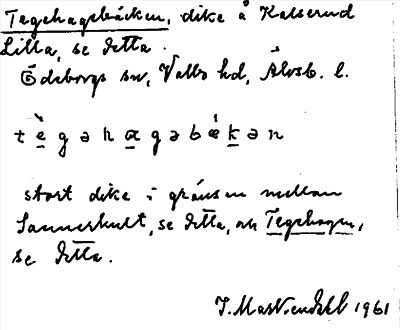 Tegehagsbäcken, dike å Kalserud
Lilla, se detta.
Ödsborgs sn, Valbo hd, Älvsb. l.
tè̱gəha̱gəbæ̀ḵən
stort dike i gränsen mellan
Sannerhult, se detta, och Tegehagen,
se detta.
1961